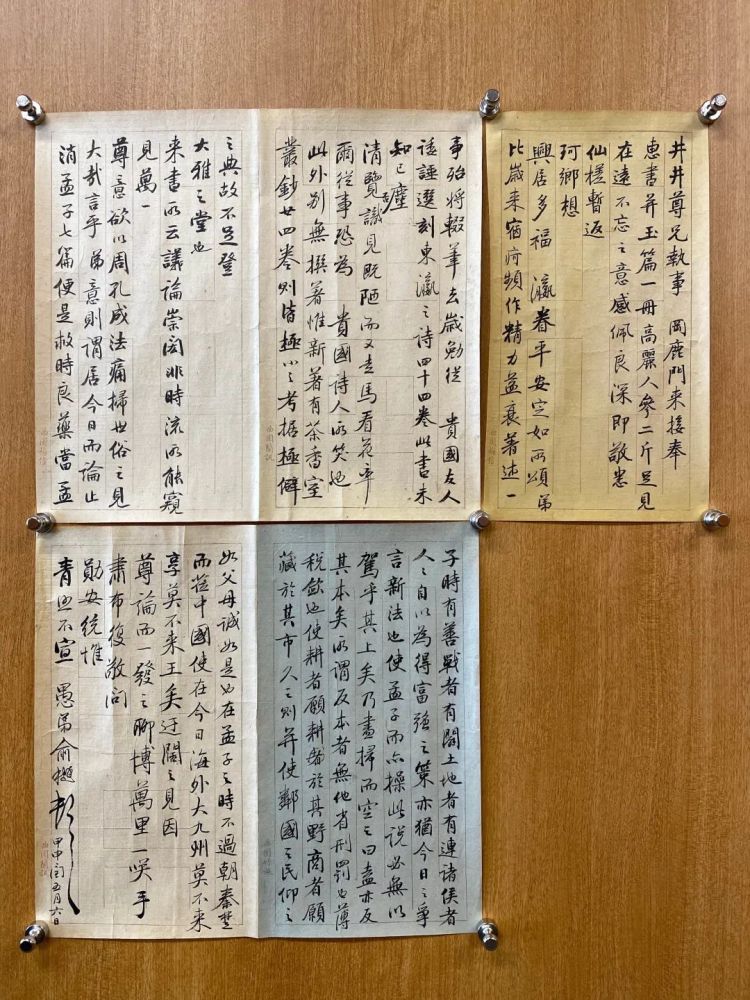 井井尊兄執事 岡鹿門来接奉
惠書并玉篇一冊高麗人參二斤足見
在遠不忘之意感佩良深即敬悉
仙槎暫返
珂鄉想
興居多福 瀛眷平安定如所頌弟
比歲来宿疴頻作精力益衰著述一
事殆將輟筆去歲勉從 貴國友人
諈諉選刻東瀛之詩四十四卷此書未
知已塵
清覽識見既陋而又走馬看花率
爾從事恐為 貴國詩人所笑也
此外別無撰著惟新著有茶香室
叢鈔廿四卷則皆極小之考据極僻
之典故不足登
大雅之堂也
来書所云議論崇閎非時流所能窺
見萬一
尊意欲以周孔成法痛掃世俗之見
大哉言乎 弟意則謂居今日而論止
消孟子七篇便是救時良藥當孟
子時有善戰者有闢土地者有連諸侯者
人之自以為得富強之策亦猶今日之爭
言新法也使孟子而亦操此說必無以
駕乎其上矣乃盡掃而空之曰盍亦反
其本矣所謂反本者無他省刑罰也薄
稅斂也使耕者願耕於其野商者願
藏於其市久之則并使鄰國之民仰之
如父母誠如是也在孟子之時不過朝秦楚
而莅中國使在今日海外大九州莫不来
享莫不来王矣迂闊之見因
尊論而一發之聊博萬里一咲手
肅布復敬問
勛安統惟
青照不宣 愚弟俞樾頓首
甲申閏五月六日